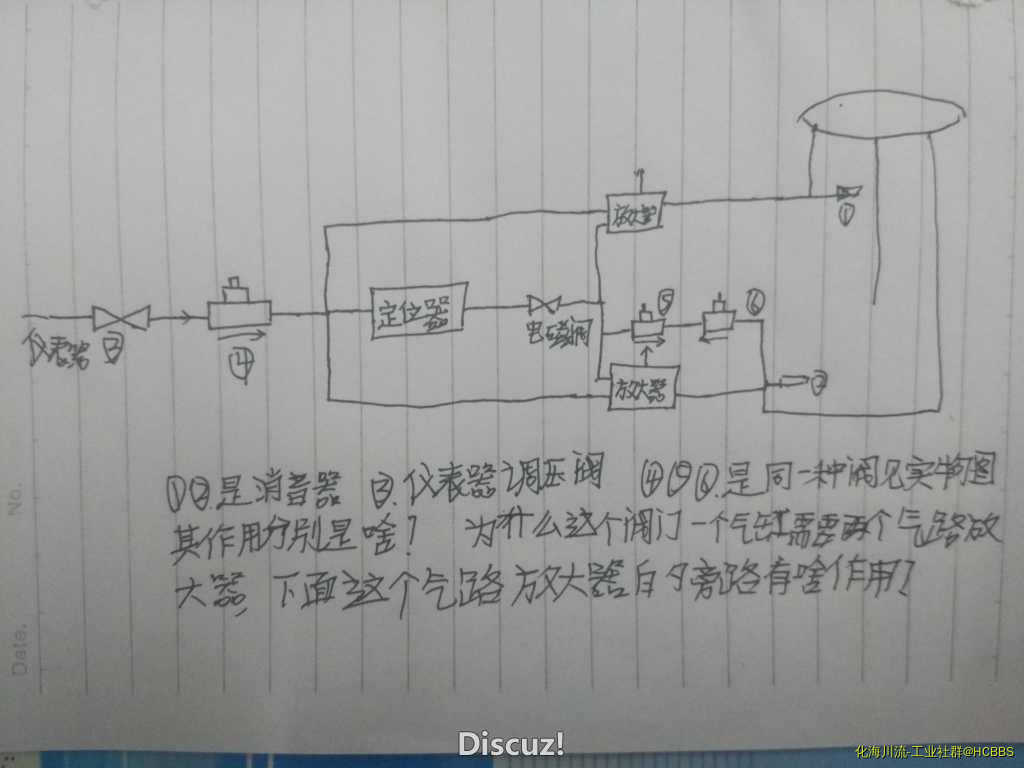 放大器
①
仪表器
③
④
定位器
电磁阀
⑤
⑥
放大器
②
①②是消音器 ③.仪表器调压阀 ④⑤⑥.是同一种阀见实物图
其作用分别是啥? 为什么这个阀门一个气缸需要两个气路放
大器, 下面这个气路放大器的旁路有啥作用?
No.
Date.
Discuz!
化海川流-工业社群@HCBBS